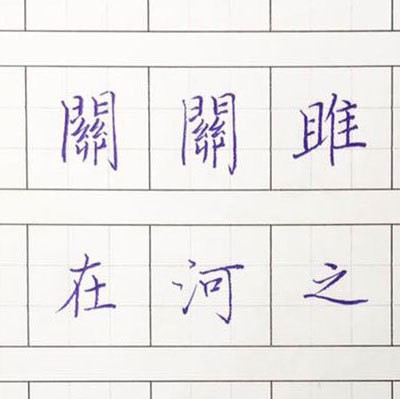 關關雎
在河之